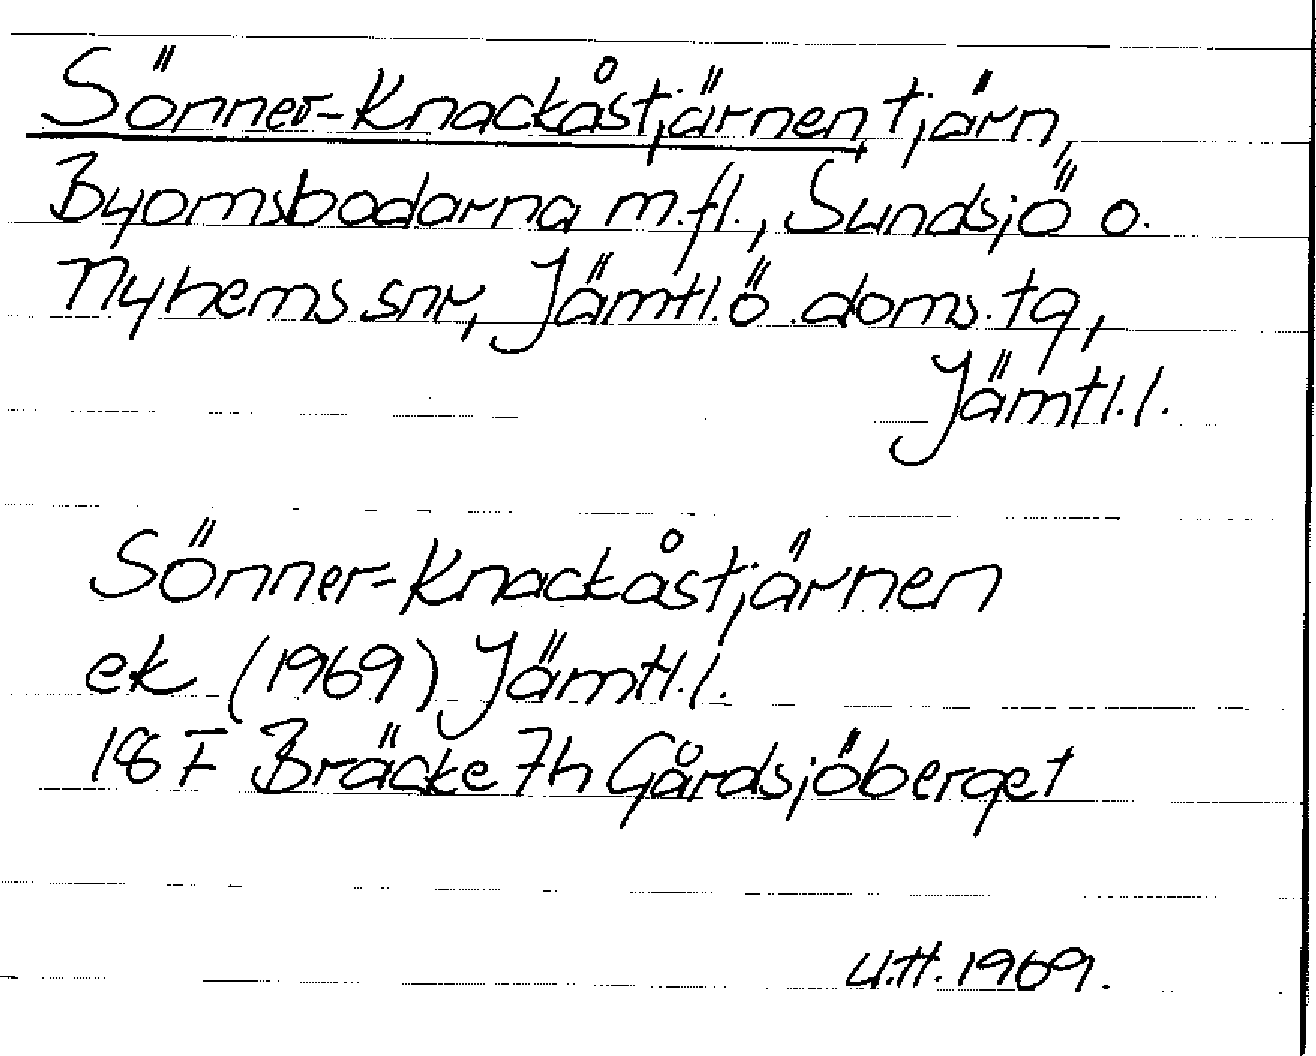 Sönner-Knackåstjärnen, tjärn,
Byomsbodarna m.fl., Sundsjö o.
Nyhems snr, Jämtl. ö. doms. tg,
Jämtl. l.
Sönner-Knackåstjärnen
ek (1969) Jämtl. l.
18 F Bräcke 7h Gårdsjöberget
U.H. 1969.